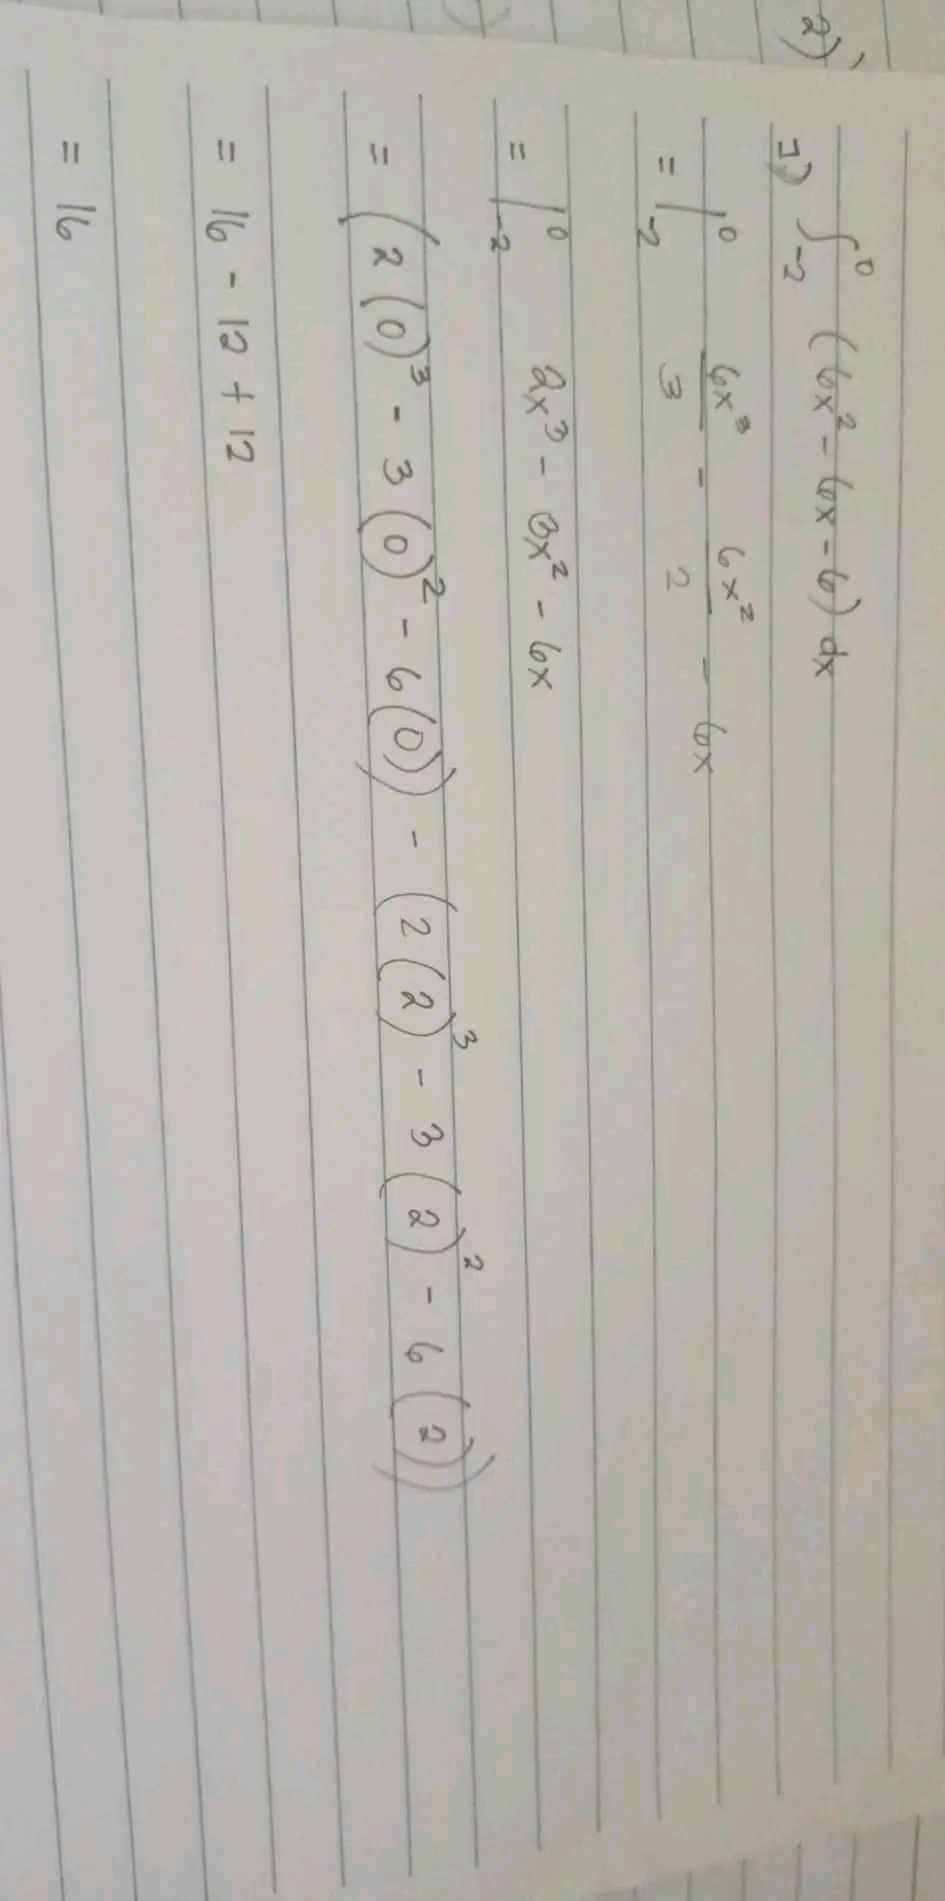 2)
1) ∫₋₂⁰ (6x² - 6x - 6) dx
= |₋₂⁰ 6x³/3 - 6x²/2 - 6x
= |₋₂⁰ 2x³ - 3x² - 6x
= (2(0)³ - 3(0)² - 6(0)) - (2(2)³ - 3(2)² - 6(2))
= 16 - 12 + 12
= 16